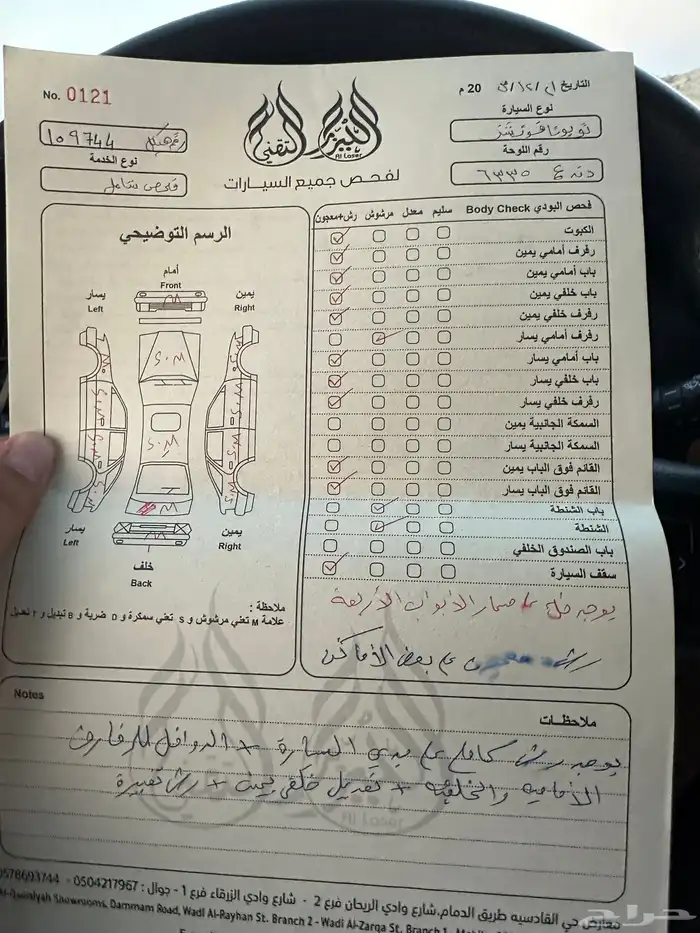 No. 0121
التاريخ ٢١/١٢/ 20 م
الليزر التقني
Al Laser
لفحص جميع السيارات
نوع السيارة
تويوتا فورتشنر
رقم اللوحة
٦٣٣٥
رقم هيكل 109744
نوع الخدمة
فحص شامل
الرسم التوضيحي
أمام
Front
يسار
Left
يمين
Right
M.S
M.S
M
يسار
Left
يمين
Right
خلف
Back
ملاحظة :
علامة M تعني مرشوش و S تعني سمكرة و D ضربة و B تبديل و T تعديل
فحص البودي Body Check سليم معدل مرشوش رش+معجون
الكبوت
رفرف أمامي يمين
باب أمامي يمين
باب خلفي يمين
رفرف خلفي يمين
رفرف أمامي يسار
باب أمامي يسار
باب خلفي يسار
رفرف خلفي يسار
السمكة الجانبية يمين
السمكة الجانبية يسار
القائم فوق الباب يمين
القائم فوق الباب يسار
باب الشنطة
الشنطة
باب الصندوق الخلفي
سقف السيارة
يوجد الأبواب الأربعة
رش بعض الأماكن
Notes
ملاحظات
يوجد رش كامل على بدي السيارة + الدواخل للرفارف
الأمامية والخلفية + تعديل خلفي يمين + رش
Al Laser
معارض حي القادسيه طريق الدمام,شارع وادي الريحان فرع 2 - شارع وادي الزرقاء فرع 1 - جوال : 0504217967 - 0578693744
Al-Qadisiyah Showrooms, Dammam Road, Wadi Al-Rayhan St. Branch 2 - Wadi Al-Zarqa St. Branch 1
حراج